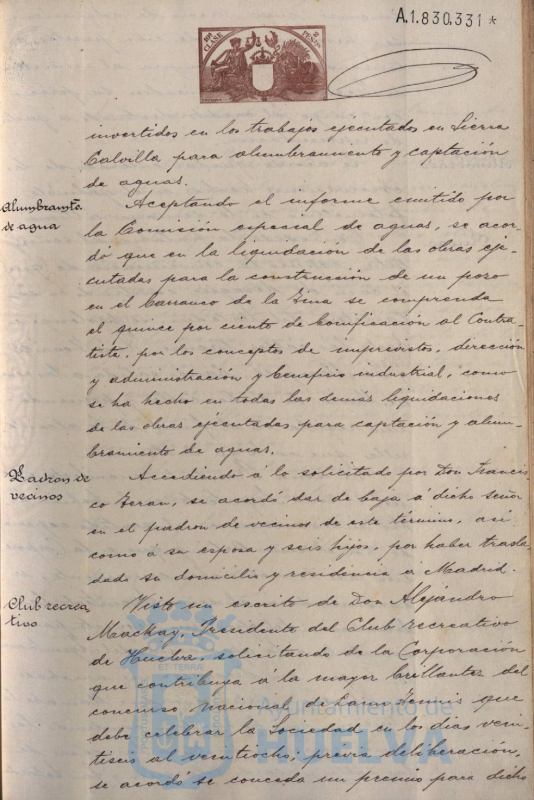 A.1.830.331 *
10ª CLASE
2 PESETAS
invertidos en los trabajos ejecutados en Sierra
Calvilla para alumbramiento y captación
de aguas.
Alumbramto.
de agua
Aceptando el informe emitido por
la Comisión especial de aguas, se acor-
dó que en la liquidación de las obras eje-
cutadas para la construcción de un pozo
en el barranco de la se comprenda
el quince por ciento de bonificación al Contra-
tista, por los conceptos de imprevistos, dirección
y administración y beneficio industrial, como
se ha hecho en todas las demás liquidaciones
de las obras ejecutadas para captación y alum-
bramiento de aguas.
Padron de
vecinos
Accediendo á lo solicitado por Don Francis-
co Teran, se acordó dar de baja á dicho señor
en el padron de vecinos de este término, así
como á su esposa y seis hijos, por haber trasla-
dado su domicilio y residencia á Madrid.
Club recrea
tivo
Visto un escrito de Don Alejandro
Mackay, Presidente del Club recreativo
de Huelva, solicitando de la Corporación
que contribuya á la mayor brillantez del
concurso Nacional de Lawn Tennis que
debe celebrar la Sociedad en los dias vein-
tiseis al veintiocho; previa deliberación,
se acordó se conceda un premio para dicho
Ayuntamiento de
HUELVA